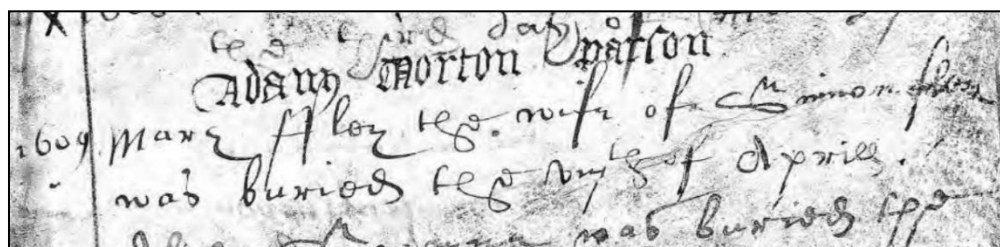 the third day
Adam Morton parson
1609 Mary ffley the wife of Simon ffley
was buried the vijth of Aprill.
was buried the